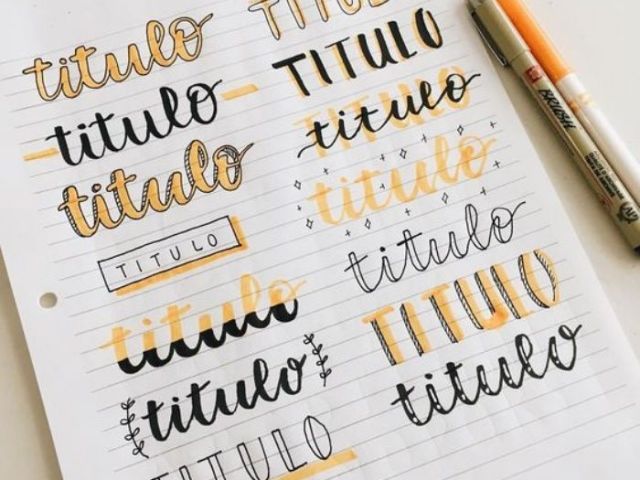 titulo
titulo
titulo
TITULO
titulo
titulo
TITULO
TITULO
TITULO
titulo
titulo
titulo
TITULO
titulo
BRUSH